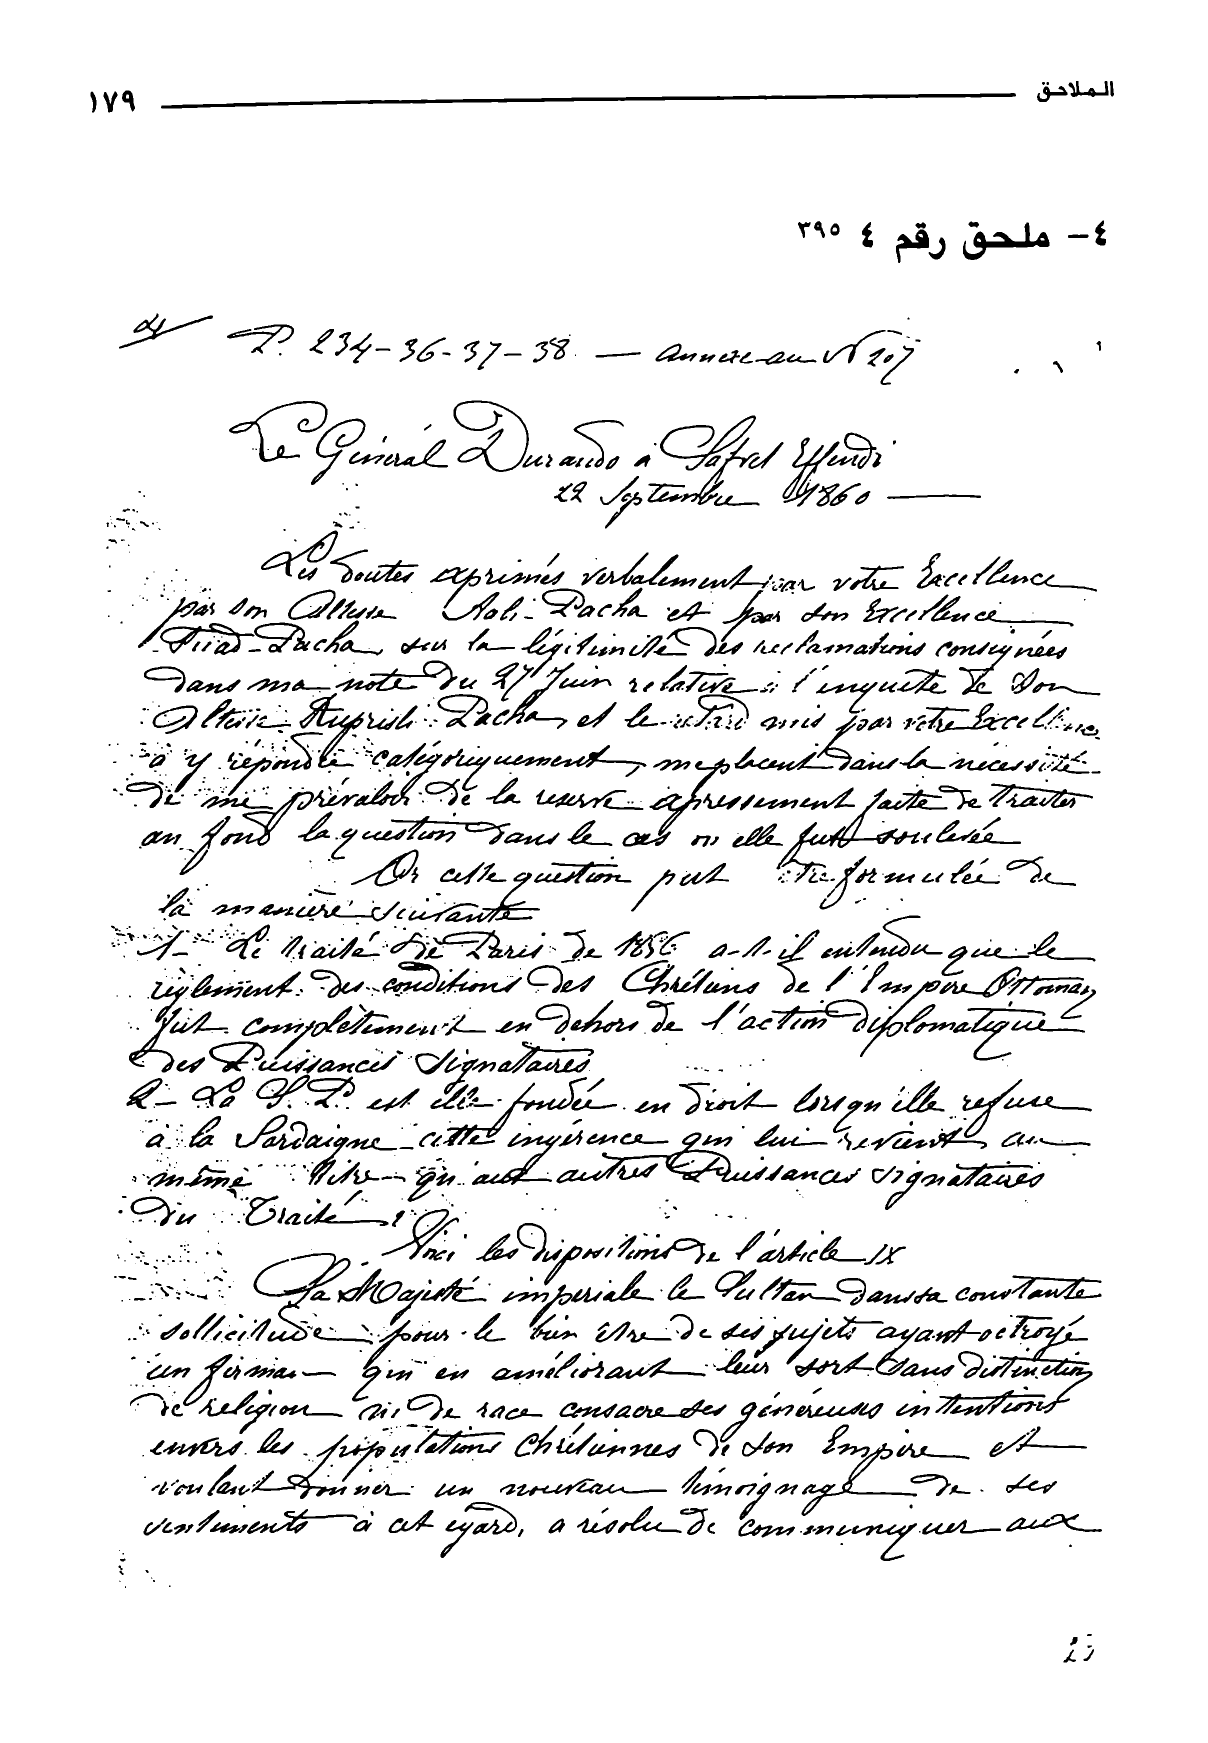 الملاحق
١٧٩
٤- ملحق رقم ٤ ٣٩٥
P. 234-36-37-38 — annexe au N° 207
Le Général Durando à Safvet Effendi
22 Septembre 1860
Les doutes exprimés verbalement par votre Excellence
par son Altesse Aali-Pacha et par son Excellence
Fuad-Pacha, sur la légitimité des reclamations consignées
dans ma note du 27 Juin relative à l'enquête de Son
Altesse Kuprisli Pacha, et le retard mis par votre Excellence
à y répondre catégoriquement, me placent dans la nécessité
de me prévaloir de la reserve expressement faite de traiter
au fond la question dans le cas où elle fut soulevée
Or cette question peut être formulée de
la manière suivante
1- Le traité de Paris de 1856 a-t-il entendu que le
règlement des conditions des Chrétiens de l'Empire Ottoman
fut complètement en dehors de l'action diplomatique
des Puissances Signataires
2- La S. P. est elle fondée en droit lorsqu'elle refuse
à la Sardaigne cette ingérence qui lui revient, au
même titre qu'aux autres Puissances signataires
du Traité?
Voici les dispositions de l'article IX
Sa Majesté impériale le Sultan dans sa constante
sollicitude pour le bien être de ses sujets ayant octroyé
un firman qui en améliorant leur sort sans distinction
de religion ni de race consacre ses généreuses intentions
envers les populations Chrétiennes de son Empire et
voulant donner un nouveau témoignage de ses
sentiments à cet égard, a résolu de communiquer aux